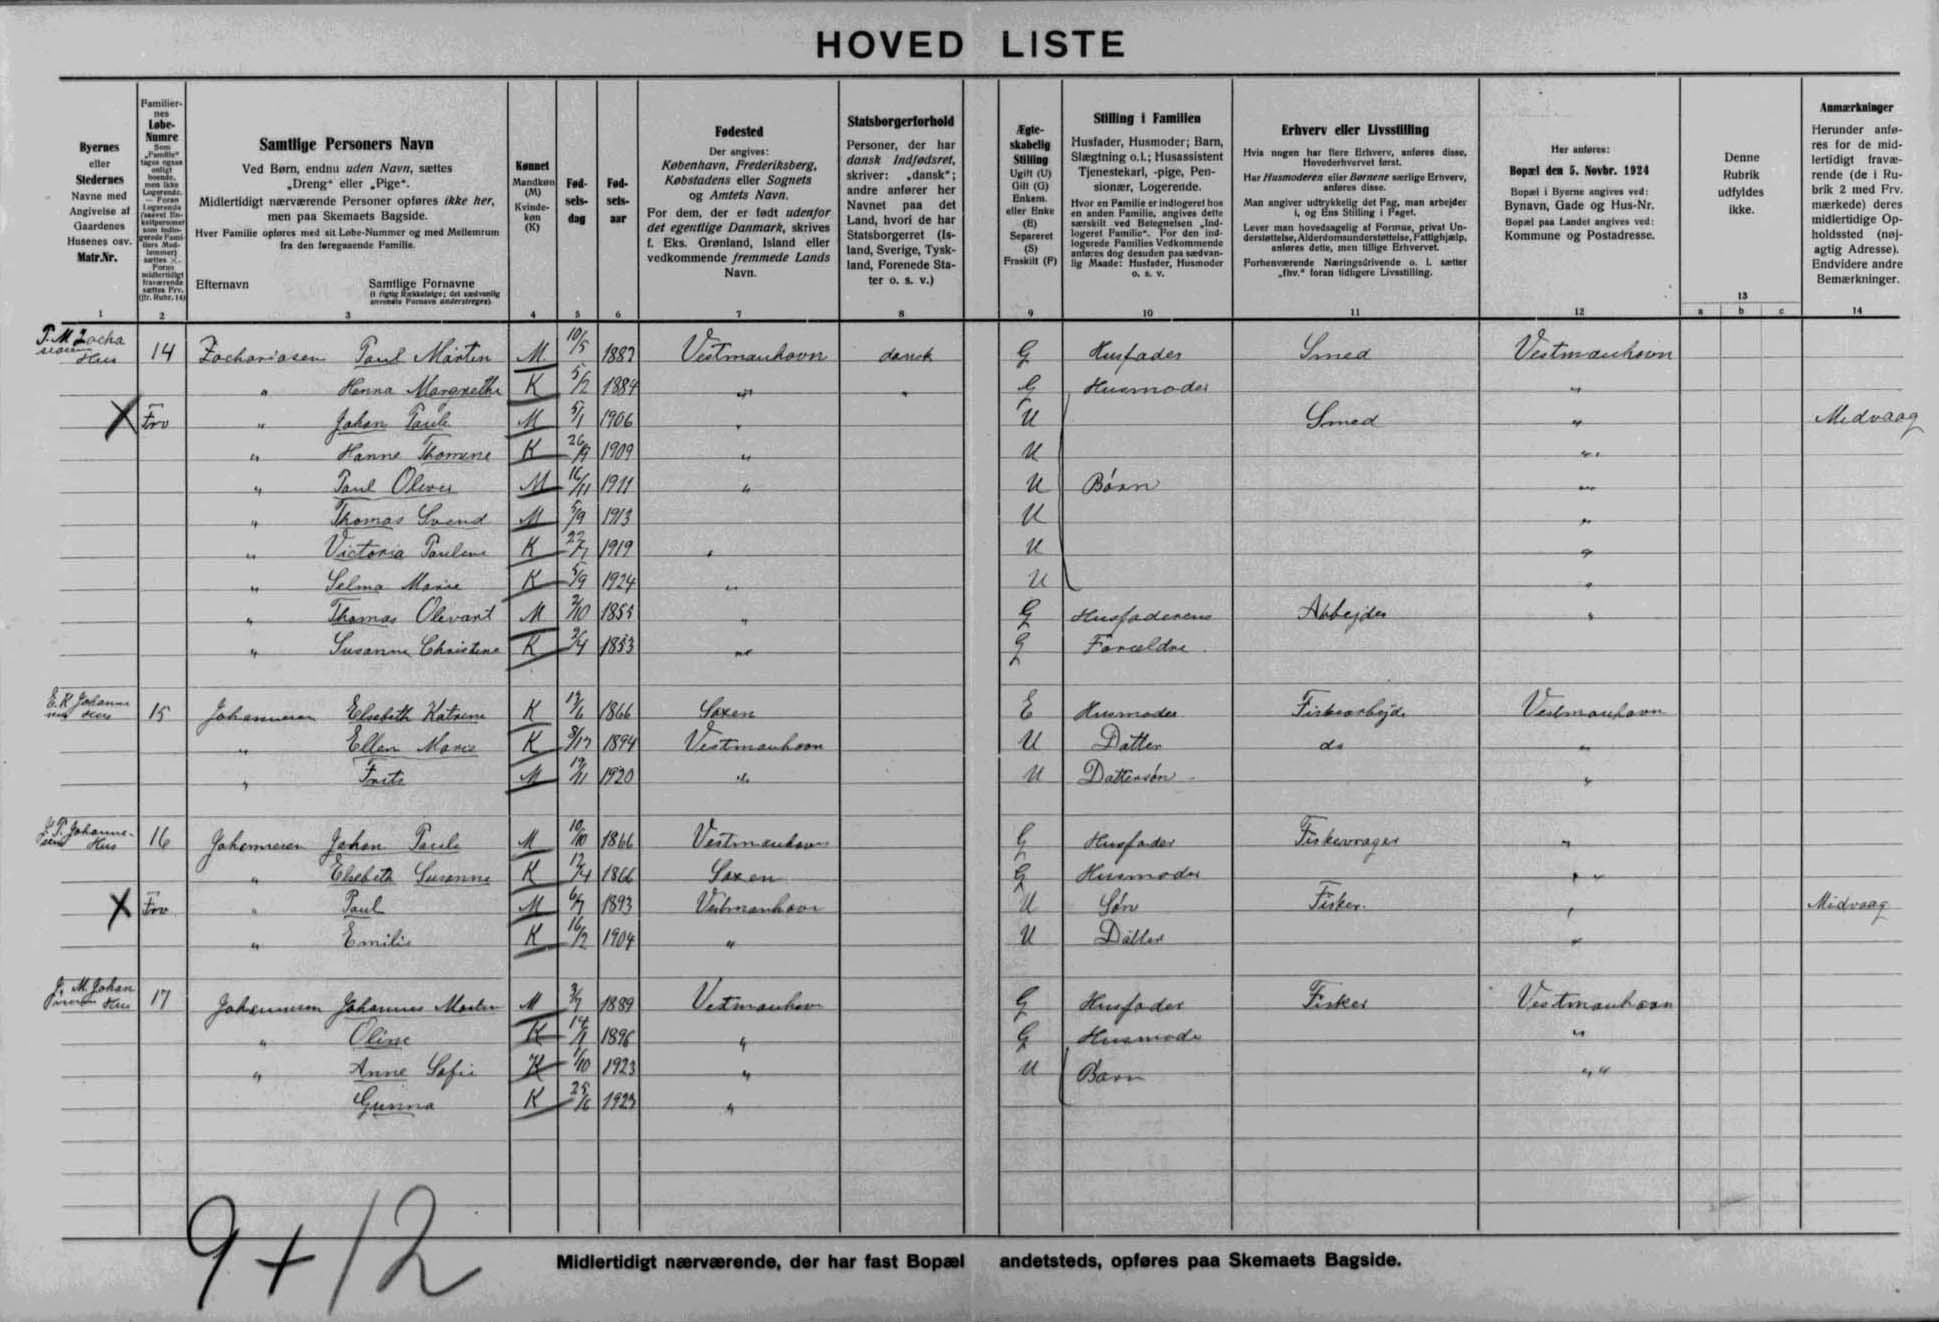 HOVED LISTE
Byernes
eller
Stedernes
Navne med
Angivelse af
Gaardenes
Husenes osv.
Matr.Nr.
1
Familier-
nes
Løbe-
Numre
Som
„Familie“
tages ogsaa
enligt
boende,
men ikke
Logerende.
— Foran
Logerende
sættes X.
Foran
midlertidigt
fraværende
sættes Frv.
(jfr. Rubr. 14)
2
Samtlige Personers Navn
Ved Børn, endnu uden Navn, sættes
„Dreng“ eller „Pige“.
Midlertidigt nærværende Personer opføres ikke her,
men paa Skemaets Bagside.
Hver Familie opføres med sit Løbe-Nummer og med Mellemrum
fra den foregaaende Familie.
Efternavn Samtlige Fornavne
(i rigtig Rækkefølge; det sædvanlig
anvendte Fornavn understreges).
3
Kønnet
Mandkøn
(M)
Kvinde-
køn
(K)
4
Fød-
sels-
dag
5
Fød-
sels-
aar
6
Fødested
Der angives:
København, Frederiksberg,
Købstadens eller Sognets
og Amtets Navn.
For dem, der er født udenfor
det egentlige Danmark, skrives
f. Eks. Grønland, Island eller
vedkommende fremmede Lands
Navn.
7
Statsborgerforhold
Personer, der har
dansk Indfødsret,
skriver: „dansk“;
andre anfører her
Navnet paa det
Land, hvori de har
Statsborgerret (Is-
land, Sverige, Tysk-
land, Forenede Sta-
ter o. s. v.)
8
Ægte-
skabelig
Stilling
Ugift (U)
Gift (G)
Enkem.
eller Enke
(E)
Separeret
(S)
Fraskilt (F)
9
Stilling i Familien
Husfader, Husmoder; Barn,
Slægtning o.l.; Husassistent
Tjenestekarl, -pige, Pen-
sionær, Logerende.
Hvor en Familie er indlogeret hos
en anden Familie, angives dette
særskilt ved Betegnelsen „Ind-
logeret Familie“. For den ind-
logerede Families Vedkommende
anføres dog desuden paa sædvan-
lig Maade: Husfader, Husmoder
o. s. v.
10
Erhverv eller Livsstilling
Hvis nogen har flere Erhverv, anføres disse,
Hovederhvervet først.
Har Husmoderen eller Børnene særlige Erhverv,
anføres disse.
Man angiver udtrykkelig det Fag, man arbejder
i, og Ens Stilling i Faget.
Lever man hovedsagelig af Formue, privat Un-
derstøttelse, Alderdomsunderstøttelse, Fattighjælp,
anføres dette, men tillige Erhvervet.
Forhenværende Næringsdrivende o. l. sætter
„fhv.“ foran tidligere Livsstilling.
11
Her anføres:
Bopæl den 5. Novbr. 1924
Bopæl i Byerne angives ved:
Bynavn, Gade og Hus-Nr.
Bopæl paa Landet angives ved:
Kommune og Postadresse.
12
Denne
Rubrik
udfyldes
ikke.
13
a b c
Anmærkninger
Herunder anfø-
res for de mid-
lertidigt fravæ-
rende (de i Ru-
brik 2 med Frv.
mærkede) deres
midlertidige Op-
holdssted (nøj-
agtig Adresse).
Endvidere andre
Bemærkninger.
14
P. M. Zacha
siasen Hus 14 Zachariasen Paul Mårten M 10/5 1887 Vestmanhavn dansk G Husfader Smed Vestmanhavn
" Henna Margrethe K 5/2 1884 " " G Husmoder "
X Frv " Johan Pauli M 5/1 1906 " U Smed " Midvaag
" Hanne Thomine K 26/9 1909 " U "
" Paul Oliver M 16/11 1911 " U Børn "
" Thomas Svend M 5/9 1913 U "
" Victoria Pauline K 22/7 1919 " U "
" Selma Marie K 5/9 1924 " U "
" Thomas Olevant M 2/10 1853 " G Husfaderens Arbejder "
" Susanne Christine K 2/4 1853 " G Forældre
E. K. Johanne
sens Hus 15 Johannesen Elsebeth Katrine K 12/6 1866 Saxen E Husmoder Fiskearbejde Vestmanhavn
" Ellen Marie K 3/12 1894 Vestmanhavn U Datter do "
" Frits M 12/11 1920 " U Dattersøn "
J. P. Johanne-
sens Hus 16 Johannesen Johan Pauli M 10/10 1866 Vestmanhavn G Husfader Fiskevrager "
" Elsebeth Susanne K 12/4 1866 Saxen G Husmoder "
X Frv " Paul M 6/7 1893 Vestmanhavn U Søn Fisker " Midvaag
" Emilie K 16/2 1904 " U Datter "
J. M. Johan
nesen Hus 17 Johannesen Johannes Morten M 3/7 1889 Vestmanhavn G Husfader Fisker Vestmanhavn
" Oline K 14/1 1896 " G Husmoder "
" Anne Sofie K 1/10 1923 " U Børn " "
Gunna K 25/6 1923 "
9 + 12
Midlertidigt nærværende, der har fast Bopæl andetsteds, opføres paa Skemaets Bagside.